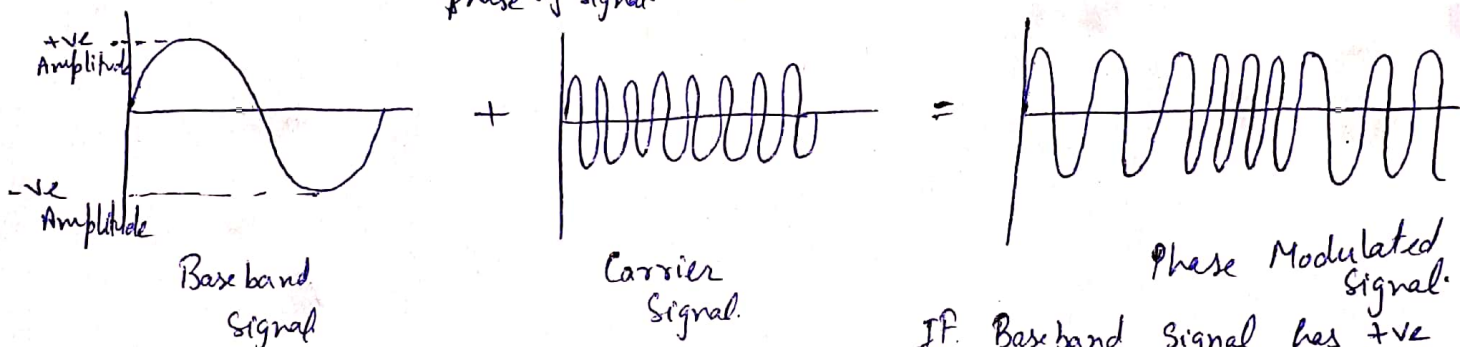 phase of signal.
+ve
Amplitude
-ve
Amplitude
+
=
Baseband
Signal
Carrier
Signal.
Phase Modulated
Signal.
IF Baseband Signal has +ve